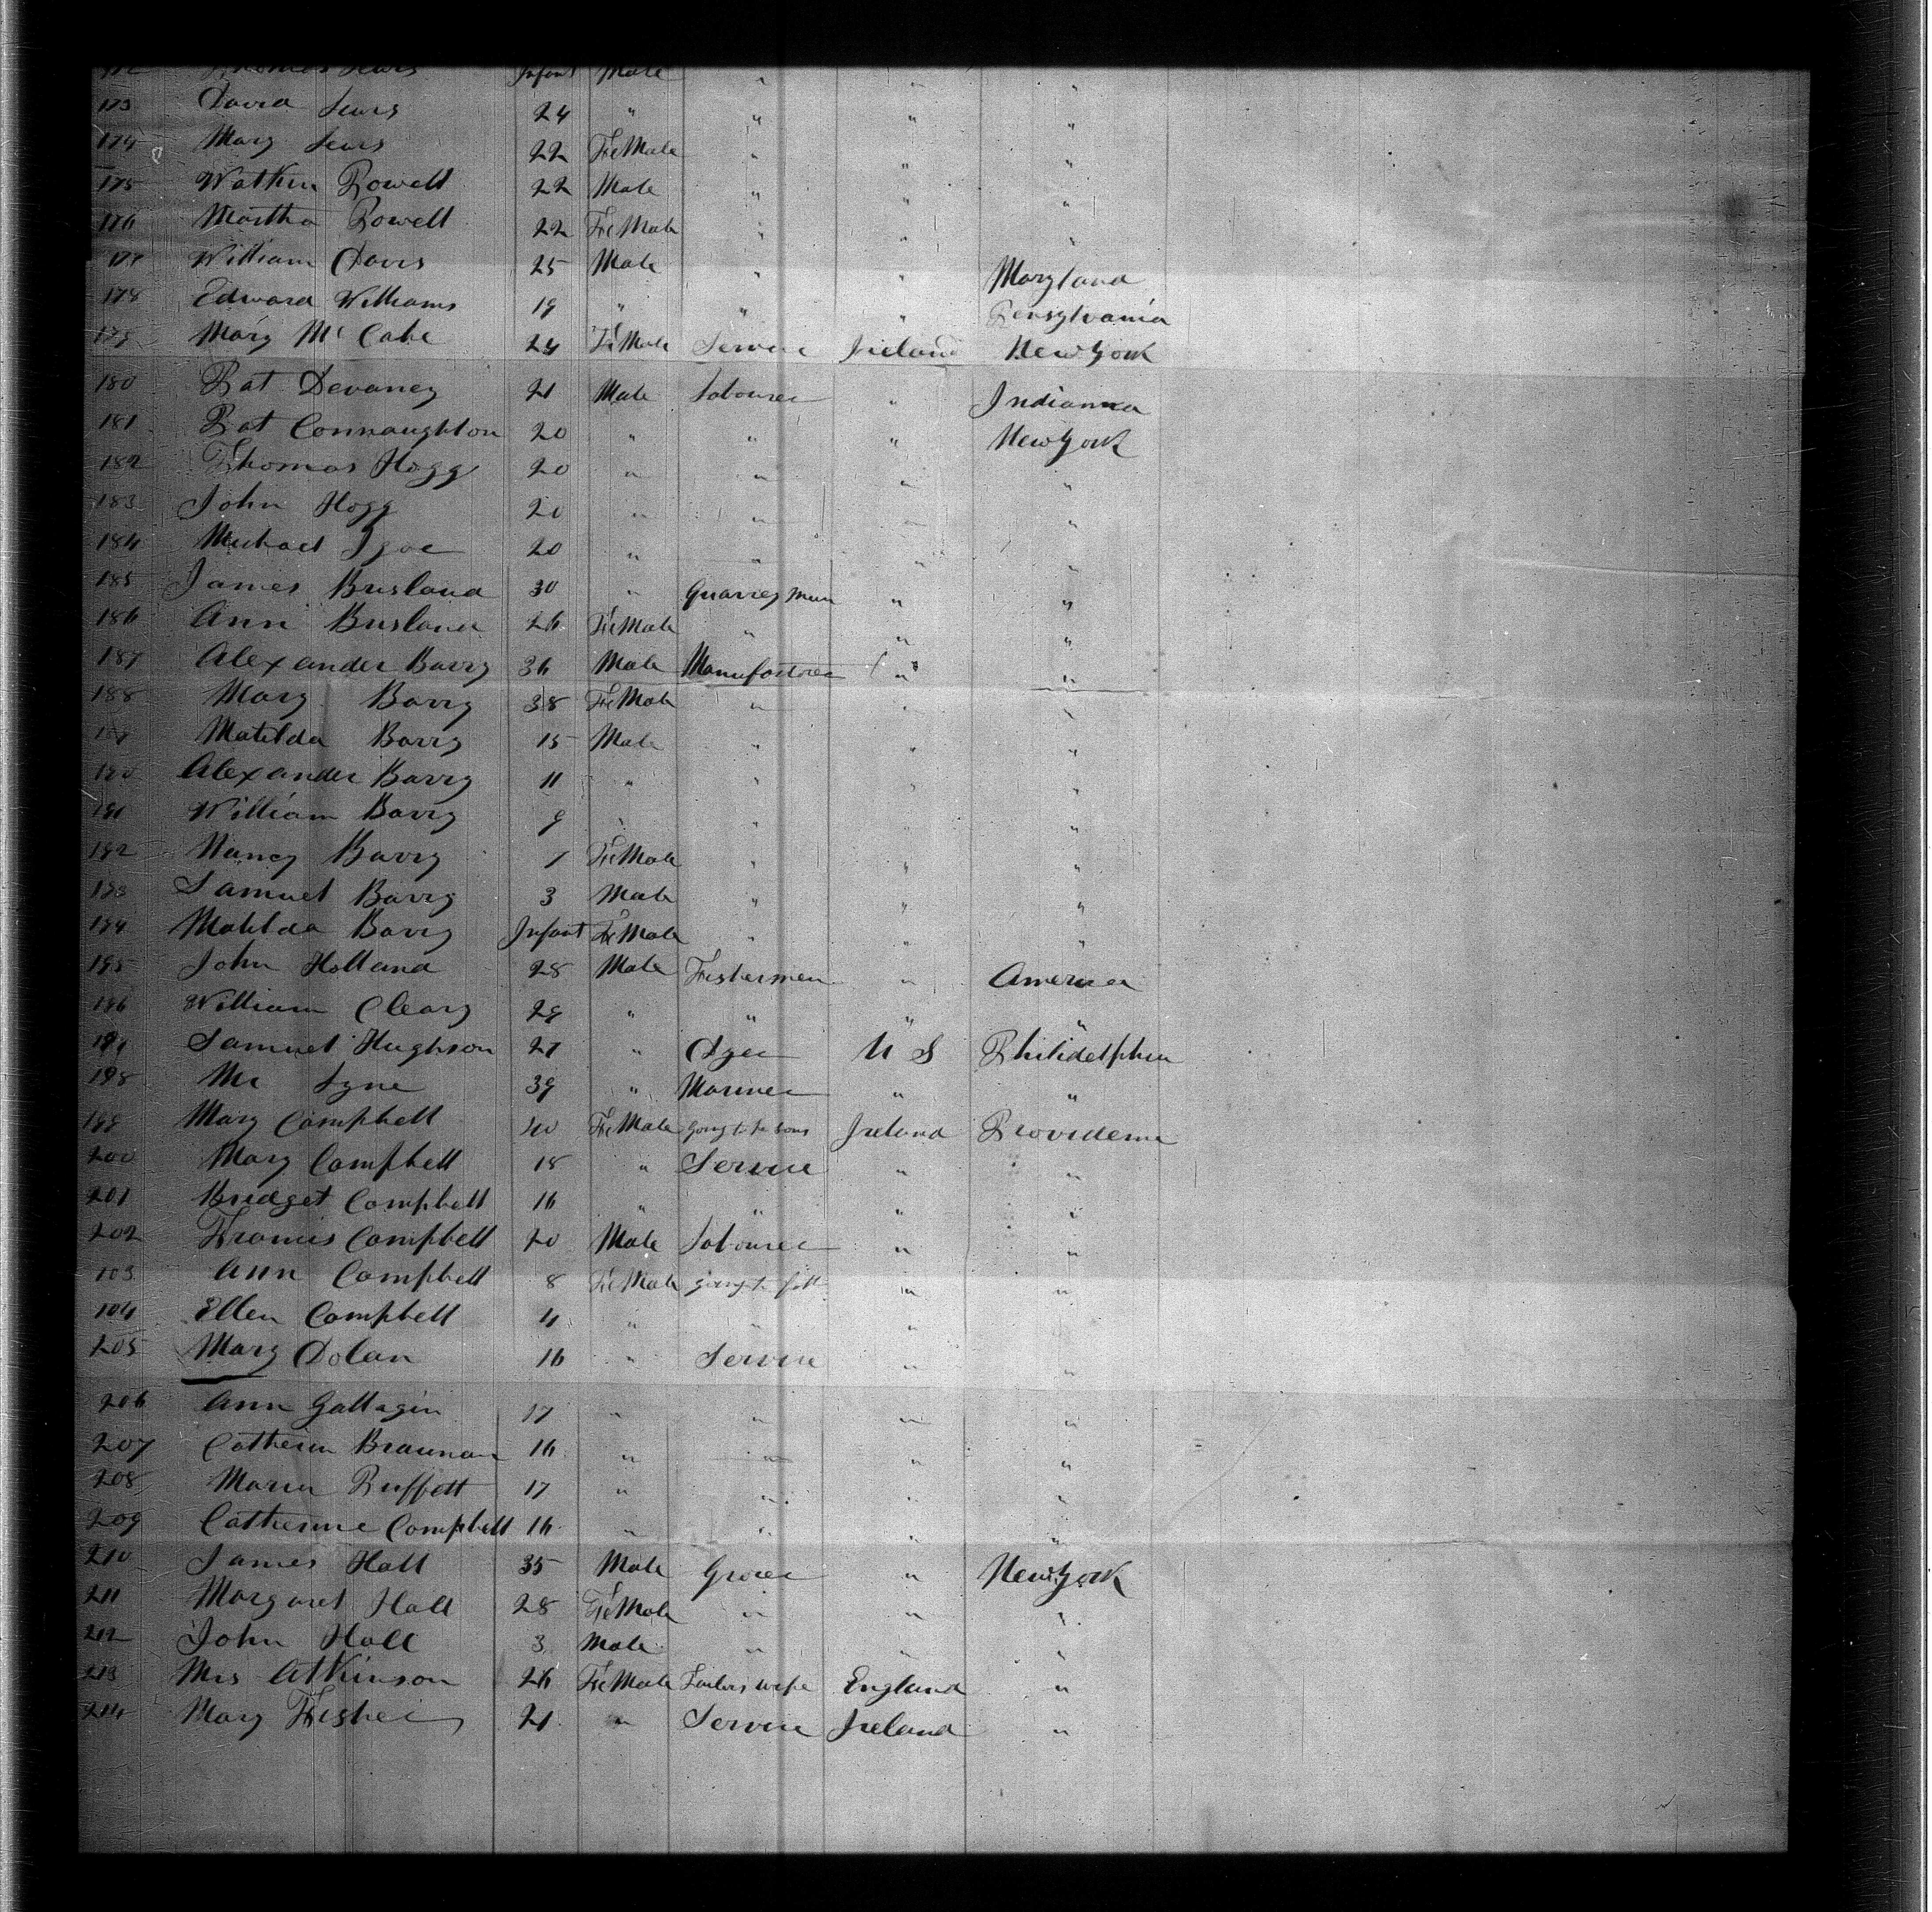 172 Thomas Lewis Infant Male " "
173 David Lewis 24 " " " "
174 Mary Lewis 22 FeMale " " "
175 Watkin Powell 22 Male " " "
176 Martha Powell 22 FeMale " " "
177 William Davis 25 Male " " Maryland
178 Edward Williams 19 " " " Pensylvania
179 Mary McCabe 24 FeMale Service Ireland New York
180 Pat Devaney 21 Male Labourer " Indianna
181 Pat Connaughton 20 " " " New York
182 Thomas Hogg 20 " " " "
183 John Hogg 20 " " " "
184 Michael Igoe 20 " " " "
185 James Brusland 30 " Quarrey man " "
186 Ann Brusland 26 FeMale " " "
187 Alexander Barry 36 Male Manufactrer " "
188 Mary Barry 38 FeMale " " "
189 Matilda Barry 15 Male " " "
190 Alexander Barry 11 " " " "
191 William Barry 9 " " " "
192 Nancy Barry 1 FeMale " " "
193 Samuel Barry 3 Male " " "
194 Matilda Barry Infant FeMale " " "
195 John Holland 28 Male Fishermen " America
196 William Cleary 28 " " " "
197 Samuel Hughson 27 " Dyer U S Philidelphia
198 Mr Lyne 39 " Mariner " "
199 Mary Campbell 40 FeMale going to Ireland Providence
200 Mary Campbell 18 " Service " "
201 Bridget Campbell 16 " " " "
202 Francis Campbell 20 Male Labourer " "
103 Ann Campbell 8 FeMale going to " "
104 Ellen Campbell 4 " " "
205 Mary Dolan 16 " Service " "
206 Ann Gallagin 17 " " " "
207 Catherin Braunan 16 " " " "
208 Maria Ruffett 17 " " " "
209 Catherine Campbell 16 " " " "
210 James Hall 35 Male Grocer " New York
211 Margaret Hall 28 FeMale " " "
212 John Hall 3 Male " " "
213 Mrs Atkinson 26 FeMale wife England "
214 Mary Fisher 21 " Service Ireland "